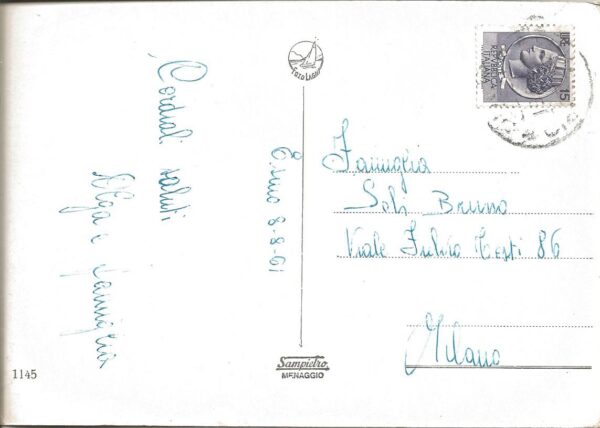 Cordiali saluti
Olga e famiglia
Esino 8-8-61
FOTO LAGO
Sampietro
MENAGGIO
1145
REPVBBLICA
ITALIANA
LIRE
15
Famiglia
Bruno
Viale Fulvio Testi 86
Milano